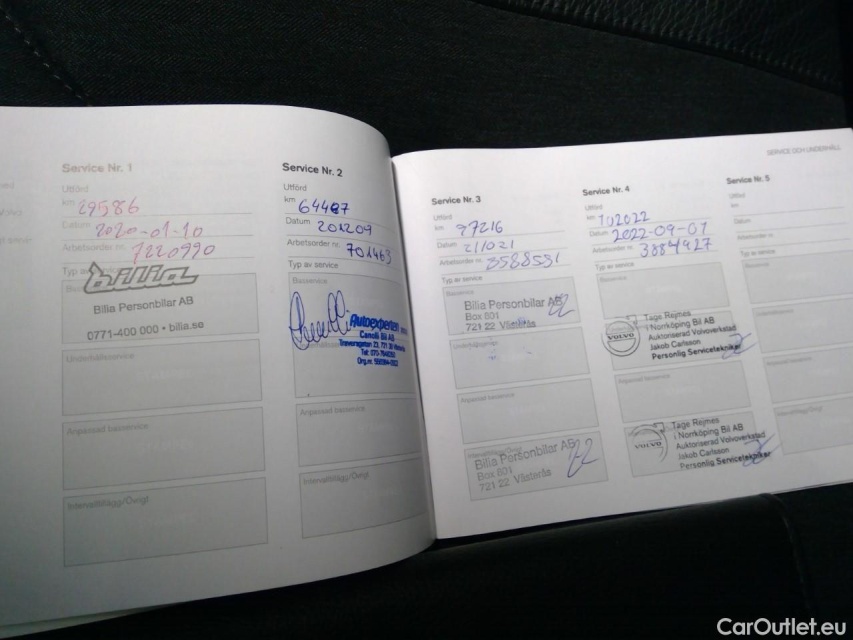 Service Nr. 1
Utförd
km 29586
Datum 2020-01-10
Arbetsorder nr. 7220990
Typ av
bilia
Bilia Personbilar AB
0771-400 000 • bilia.se
Underhållsservice
Anpassad basservice
Intervalltillägg/Övrigt
Service Nr. 2
Utförd
km 64487
Datum 201209
Arbetsorder nr. 701463
Typ av service
Basservice
Autoexperten
Traversgatan 23, 721 38
Anpassad basservice
Intervalltillägg/Övrigt
SERVICE OCH UNDERHÅLL
Service Nr. 3
Utförd
km 97216
Datum 211021
Arbetsorder nr. 3588531
Typ av service
Basservice
Bilia Personbilar AB
Box 601
721 22 Västerås
Underhållsservice
Anpassad basservice
Intervalltillägg/Övrigt
Bilia Personbilar AB
Box 601
721 22 Västerås
Service Nr. 4
Utförd
km 102022
Datum 2022-09-07
Arbetsorder nr. 3884927
Typ av service
VOLVO
Tage Rejmes
i Norrköping Bil AB
Auktoriserad Volvoverkstad
Jakob Carlsson
Personlig Servicetekniker
Anpassad basservice
VOLVO
Tage Rejmes
i Norrköping Bil AB
Auktoriserad Volvoverkstad
Jakob Carlsson
Personlig Servicetekniker
Service Nr. 5
Utförd
km
Datum
Arbetsorder nr.
Typ av service
Basservice
Underhållsservice
Anpassad basservice
Intervalltillägg/Övrigt
CarOutlet.eu